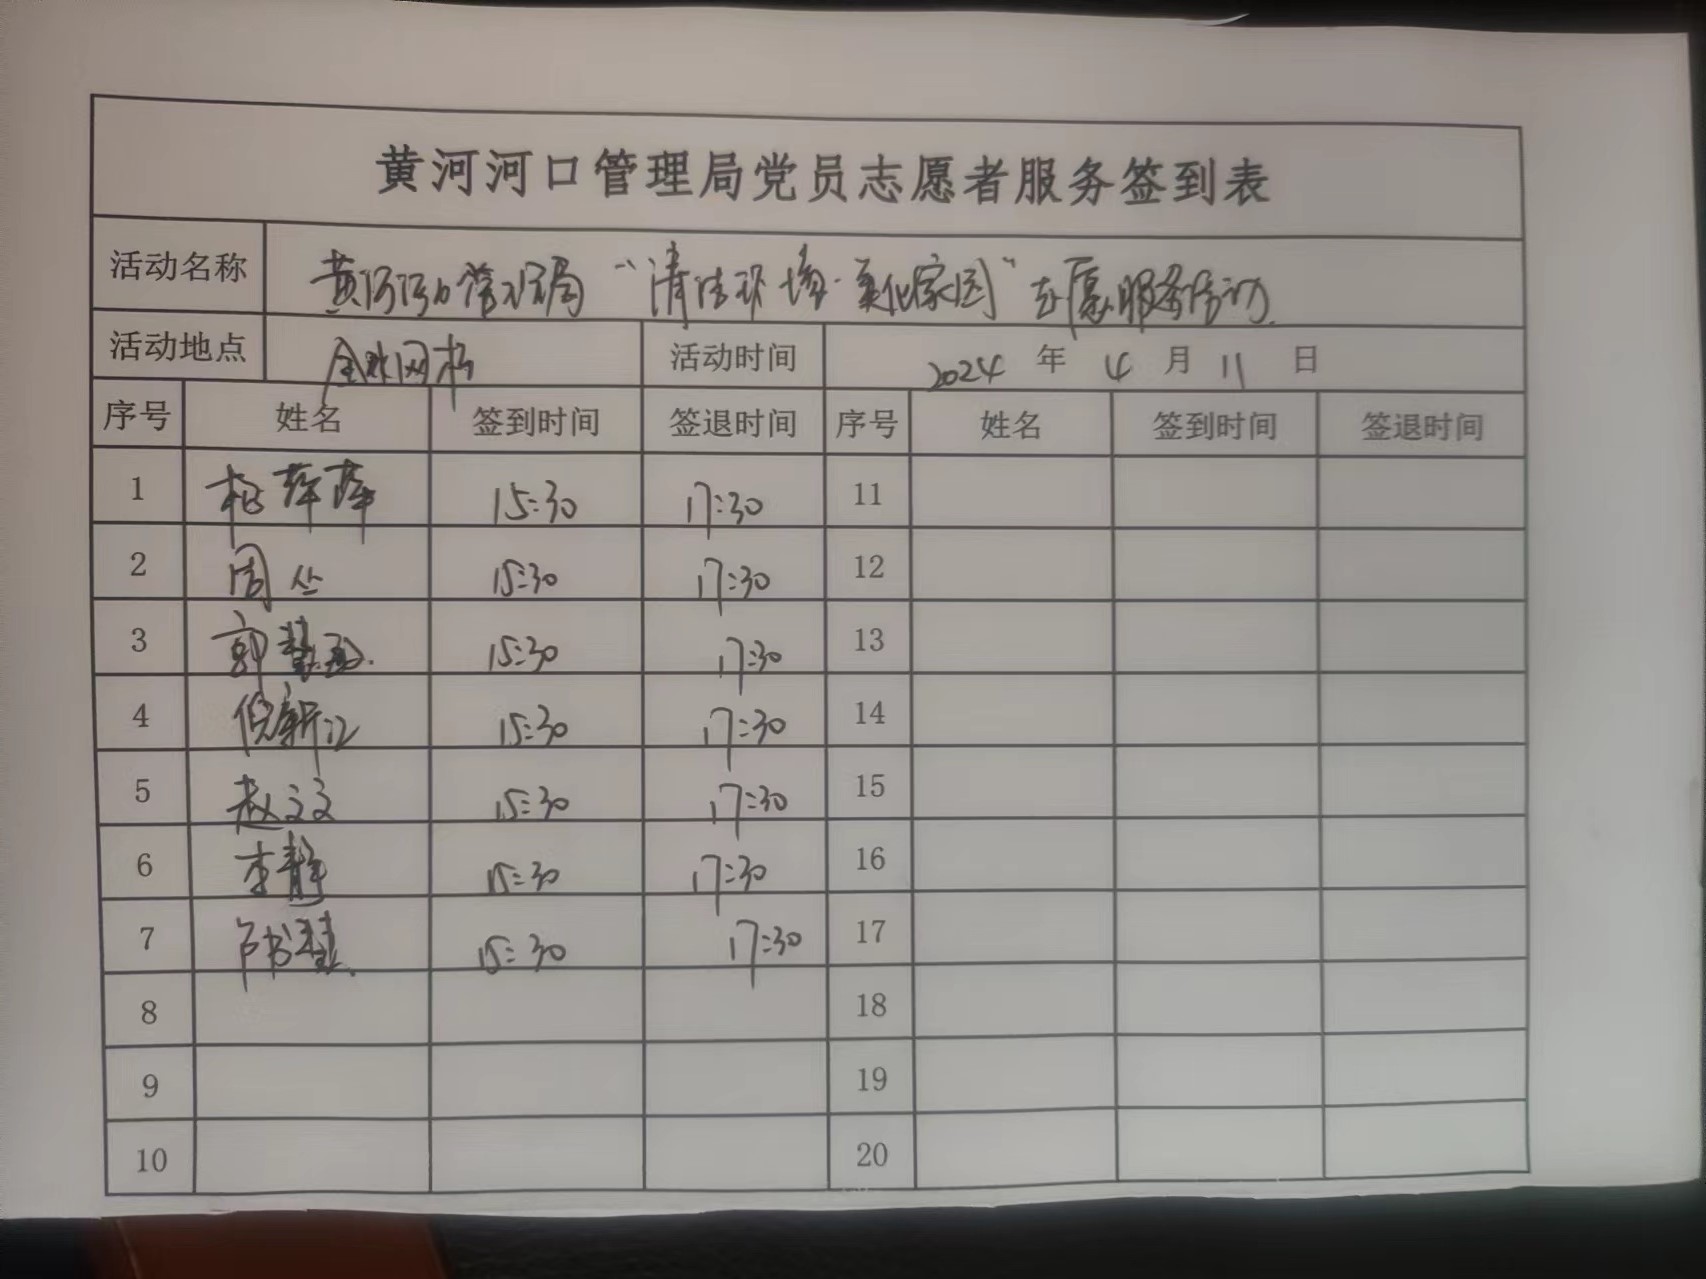 黄河河口管理局党员志愿者服务签到表
活动名称 黄河河口管理局“清洁环境·美化家园”志愿服务活动
活动地点 网格 活动时间 2024 年 4 月 11 日
序号 姓名 签到时间 签退时间 序号 姓名 签到时间 签退时间
1 15:30 17:30 11
2 周丛 15:30 17:30 12
3 郭慧 15:30 17:30 13
4 倪新江 15:30 17:30 14
5 赵文文 15:30 17:30 15
6 李静 15:30 17:30 16
7 卢书慧 15:30 17:30 17
8 18
9 19
10 20